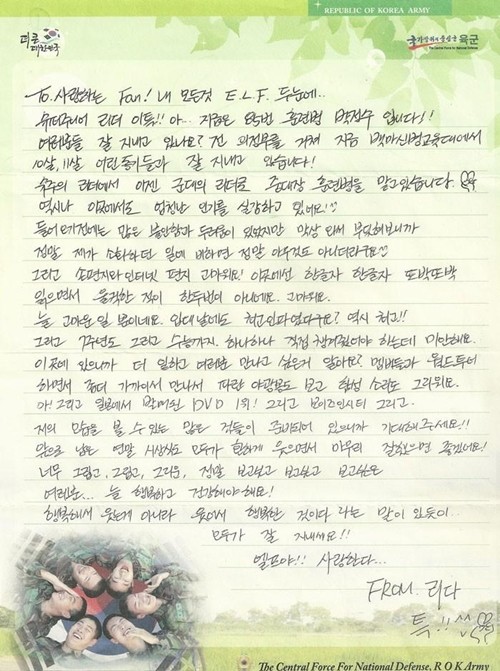 REPUBLIC OF KOREA ARMY
더 큰 대한민국
육군
The Central Force for National Defense
To. 사랑하는 Fan! 내 모든것 E.L.F. 두눈에...
슈퍼주니어 리더 이특!! 아... 지금은 85번 훈련병 박정수 입니다!
여러분들 잘 지내고 있나요? 전 의정부를 거쳐 지금 백마신병교육대에서
10살, 11살 어린 동기들과 잘 지내고 있습니다!
슈주의 리더에서 이젠 군대의 리더로 중대장 훈련병을 맡고 있습니다.
역시나 이곳에서도 엄청난 인기를 실감하고 있네요!
들어오기전에는 많은 불안함과 두려움이 있었지만 막상 와서 부딪혀보니까
정말 제가 소화하던 일에 비하면 정말 아무것도 아니더라구요
그리고 손편지와 인터넷 편지 고마워요! 이곳에선 한글자 한글자 또박또박
읽으면서 울컥한 적이 한두번이 아니에요. 고마워요.
늘 고마운 일 뿐이네요. 입대날에도 최고였다구요? 역시 최고!!
그리고 7주년도 그리고 수능까지. 하나하나 직접 챙겨줬어야 하는데 미안해요.
이곳에 있으니까 더 일하고 여러분 만나고 싶은거 알아요? 멤버들과 월드투어
하면서 좀더 가까이서 만나서 파란 야광봉도 보고 함성 소리도 그리워요.
아! 그리고 일본에서 발매된 DVD 1위! 그리고 보이즈인시티 그리고.
저의 모습을 볼 수 있는 많은 것들이 준비되어 있으니까 기대해주세요!!
앞으로 남은 연말 시상식도 모두가 함께 웃으면서 마무리 잘했으면 좋겠네요!
너무 그립고, 그립고, 그리운, 정말 보고싶고 보고싶고 보고싶은
여러분... 늘 행복하고 건강해야해요!
행복해서 웃는게 아니라 웃어서 행복한 것이다 라는 말이 있듯이..
모두가 잘 지내세요!!
엘프야!! 사랑한다...
FROM. 리다
특!!
The Central Force For National Defense, R O K Army